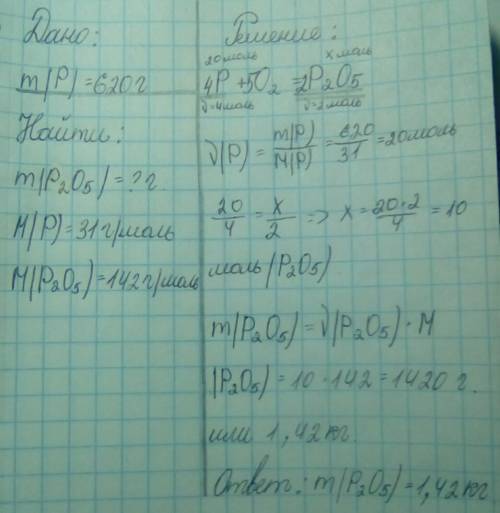 Дано:
m(P)=620 г
Найти:
m(P₂O₅)=? г.
M(P)=31 г/моль
M(P₂O₅)=142 г/моль
Решение:
20 моль x моль
4P + 5O₂ = 2P₂O₅
ν=4 моль ν=2 моль
ν(P) = m(P)/M(P) = 620/31 = 20 моль
20/4 = x/2 => x = 20·2/4 = 10
моль (P₂O₅)
m(P₂O₅) = ν(P₂O₅) · M
(P₂O₅) = 10 · 142 = 1420 г.
или 1,42 кг.
Ответ: m(P₂O₅) = 1,42 кг